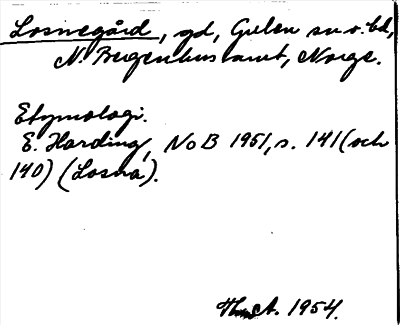 Losnegård, gd, Gulen sn o. hd,
N. Bergenhus amt, Norge.
Etymologi.
E. Harding, NoB 1951, s. 141 (och
140) (Losna).
A. 1954.